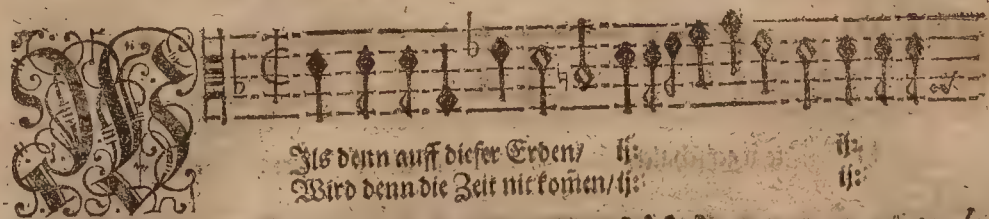 WJls denn auff dieser Erden/ ij: ij:
Wird denn die Zeit nit kom̃en/ ij: ij: